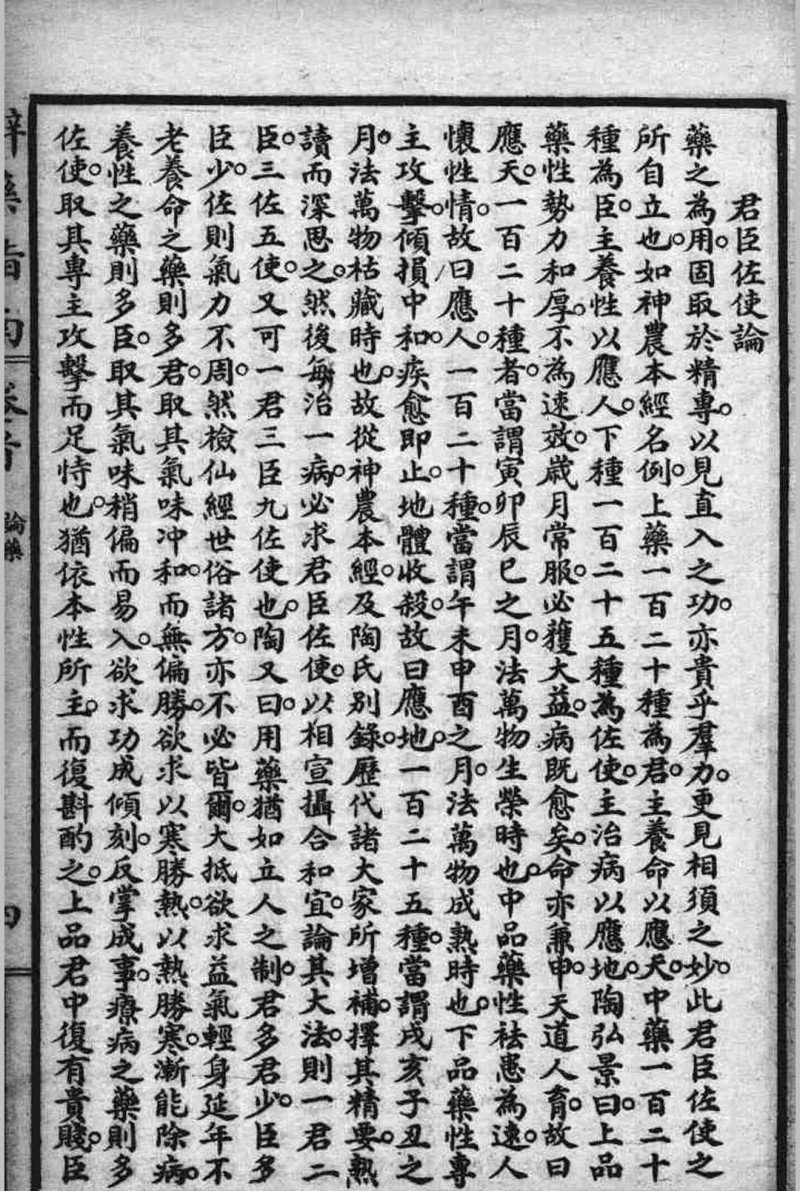 君臣佐使論
藥之為用。固取於精專。以見直入之功。亦貴乎羣力。更見相須之妙。此君臣佐使之
所自立也。如神農本經名例。上藥一百二十種為君。主養命以應天。中藥一百二十
種為臣。主養性以應人。下種一百二十五種為佐使。主治病以應地。陶弘景曰。上品
藥性勢力和厚。不為速效。歲月常服。必獲大益。病既愈矣。命亦兼申。天道人育。故曰
應天。一百二十種者。當謂寅卯辰巳之月。法萬物生榮時也。中品藥性祛患為速。人
懷性情。故曰應人。一百二十種。當謂午未申酉之月。法萬物成熟時也。下品藥性專
主攻擊。傾損中和。疾愈即止。地體收殺。故曰應地。一百二十五種。當謂戌亥子丑之
月。法萬物枯藏時也。故從神農本經。及陶氏別錄。歷代諸大家所增補。擇其精要。熟
讀而深思之。然後每治一病。必求君臣佐使。以相宣攝合和宜。論其大法。則一君二
臣。三佐五使。又可一君三臣九佐使也。陶又曰。用藥猶如立人之制。君多君少。臣多
臣少。佐則氣力不周。然檢仙經世俗諸方。亦不必皆爾。大抵欲求益氣輕身延年不
老養命之藥則多君。取其氣味冲和。而無偏勝。欲求以寒勝熱。以熱勝寒。漸能除病。
養性之藥則多臣。取其氣味稍偏而易入。欲求功成傾刻。反掌成事。療病之藥則多
佐使。取其專主攻擊而足恃也。猶依本性所主。而復斟酌之。上品君中復有貴賤。臣
論藥
四